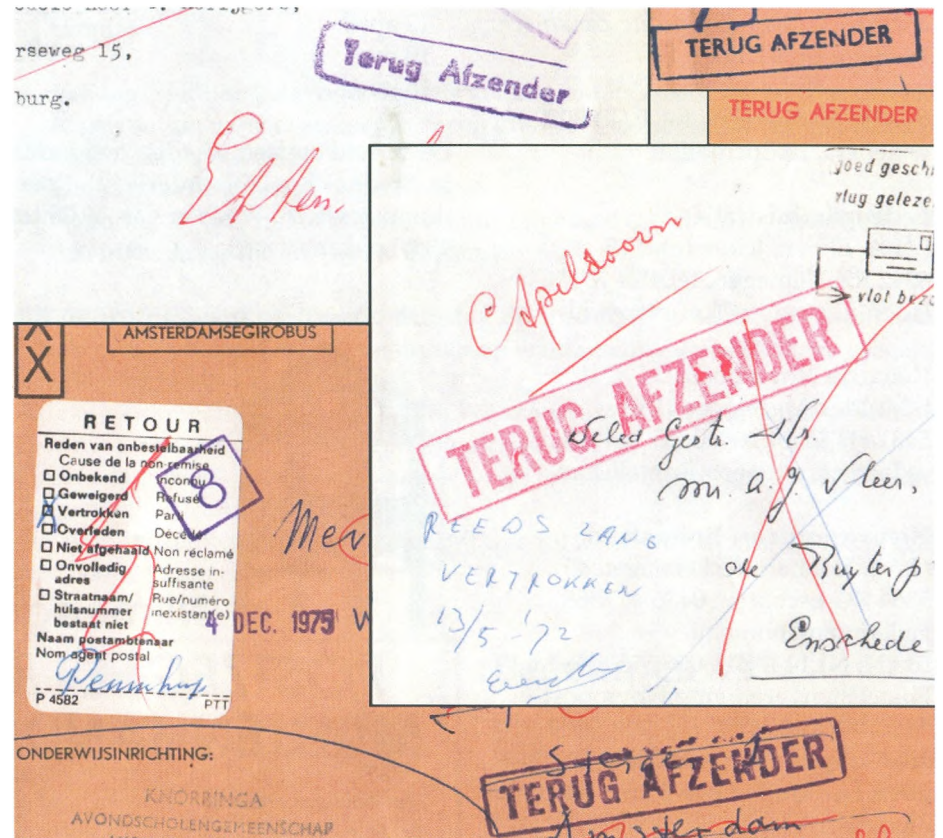 rseweg 15,
burg.
Terug Afzender
TERUG AFZENDER
TERUG AFZENDER
Etten.
Apeldoorn
goed gesch
vlug geleze
vlot bezo
TERUG AFZENDER
Weled Gestr. Hr.
mr. a. J. Vleer,
de Ruyter p
Enschede
REEDS LANG
VERTROKKEN
13/5 - '72
AMSTERDAMSEGIROBUS
X
RETOUR
Reden van onbestelbaarheid
Cause de la non-remise
Onbekend Inconnu
Geweigerd Refusé
Vertrokken Parti
Overleden Décédé
Niet afgehaald Non réclamé
Onvolledig adres Adresse in-suffisante
Straatnaam/ Rue/numéro
huisnummer inexistant(e)
bestaat niet
Naam postambtenaar
Nom agent postal
P 4582 PTT
8
Mev
4 DEC. 1975 W
ONDERWIJSINRICHTING:
KNORRINGA
AVONDSCHOLENGEMEENSCHAP
TERUG AFZENDER
Amsterdam